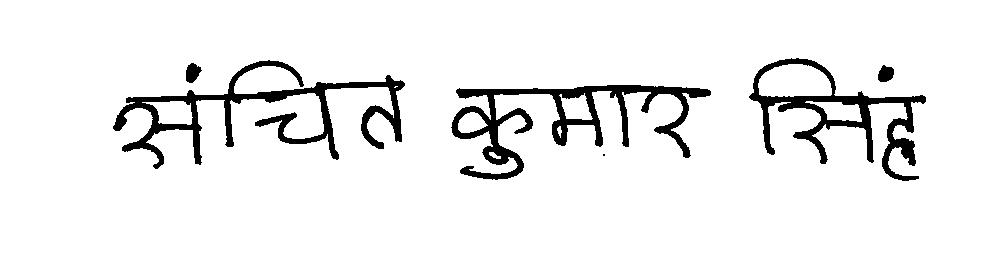 संचित कुमार सिंह